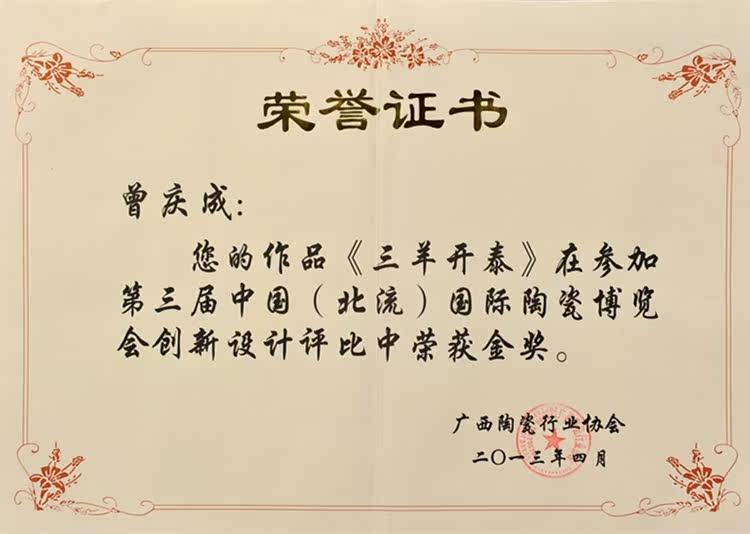 荣誉证书
曾庆成：
您的作品《三羊开泰》在参加
第三届中国（北流）国际陶瓷博览
会创新设计评比中荣获金奖。
广西陶瓷行业协会
二〇一三年四月